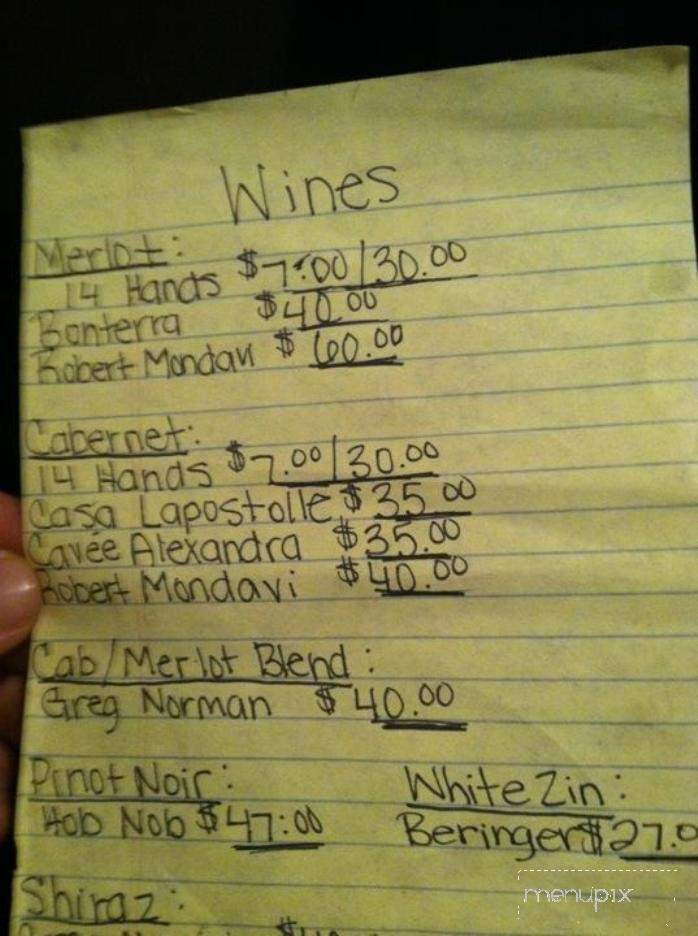 Wines
Merlot:
14 Hands $7:00/30.00
Bonterra $40.00
Robert Mondavi $60.00
Cabernet:
14 Hands $7.00/30.00
Casa Lapostolle $35.00
Cavée Alexandra $35.00
Robert Mondavi $40.00
Cab/Merlot Blend:
Greg Norman $40.00
Pinot Noir:
Hob Nob $47:00
White Zin:
Beringer $27.0
Shiraz:
menupix